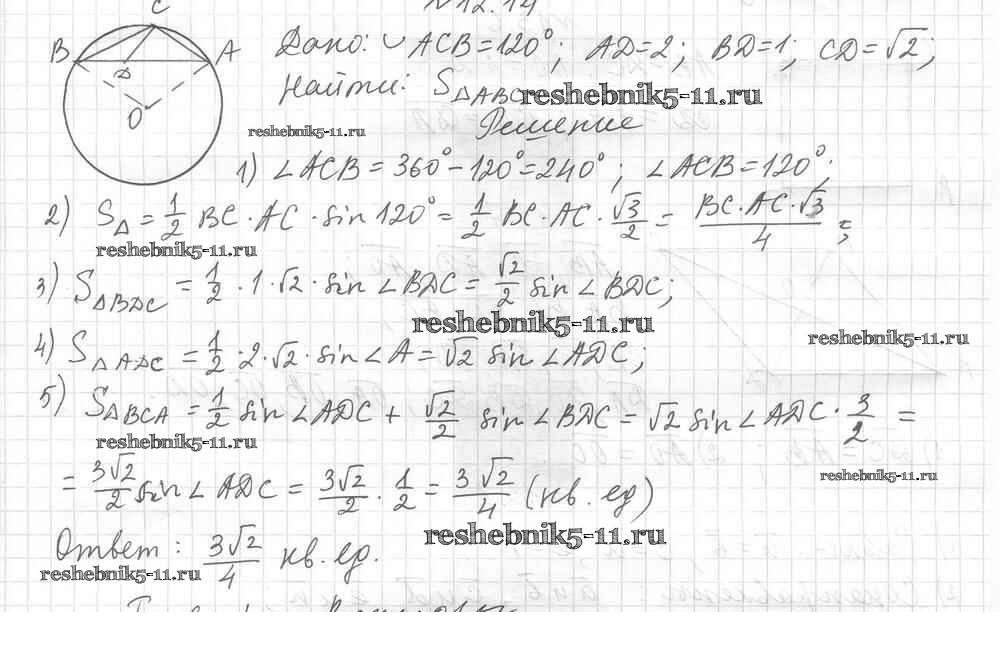 №12.14
C
B
A
D
O
Дано: ◡ACB=120°; AD=2; BD=1; CD=√2;
Найти: S△ABC
reshebnik5-11.ru
Решение
reshebnik5-11.ru
1) ∠ACB = 360° − 120° = 240°; ∠ACB = 120°;
2) S△ = 1/2 BC · AC · sin 120° = 1/2 BC · AC · √3/2 = BC · AC · √3/4;
reshebnik5-11.ru
3) S△BDC = 1/2 · 1 · √2 · sin ∠BDC = √2/2 sin ∠BDC;
reshebnik5-11.ru
reshebnik5-11.ru
4) S△ADC = 1/2 · 2 · √2 · sin ∠A = √2 sin ∠ADC;
5) S△BCA = 1/2 sin ∠ADC + √2/2 sin ∠BDC = √2 sin ∠ADC · 3/2 =
reshebnik5-11.ru
reshebnik5-11.ru
= 3√2/2 sin ∠ADC = 3√2/2 · 1/2 = 3√2/4 (кв. ед)
reshebnik5-11.ru
Ответ: 3√2/4 кв. ед.
reshebnik5-11.ru